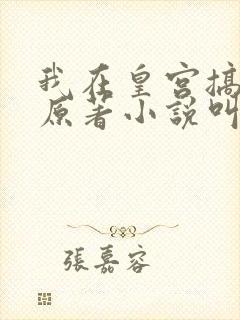 我在皇宮搞
原著小說叫
張嘉容